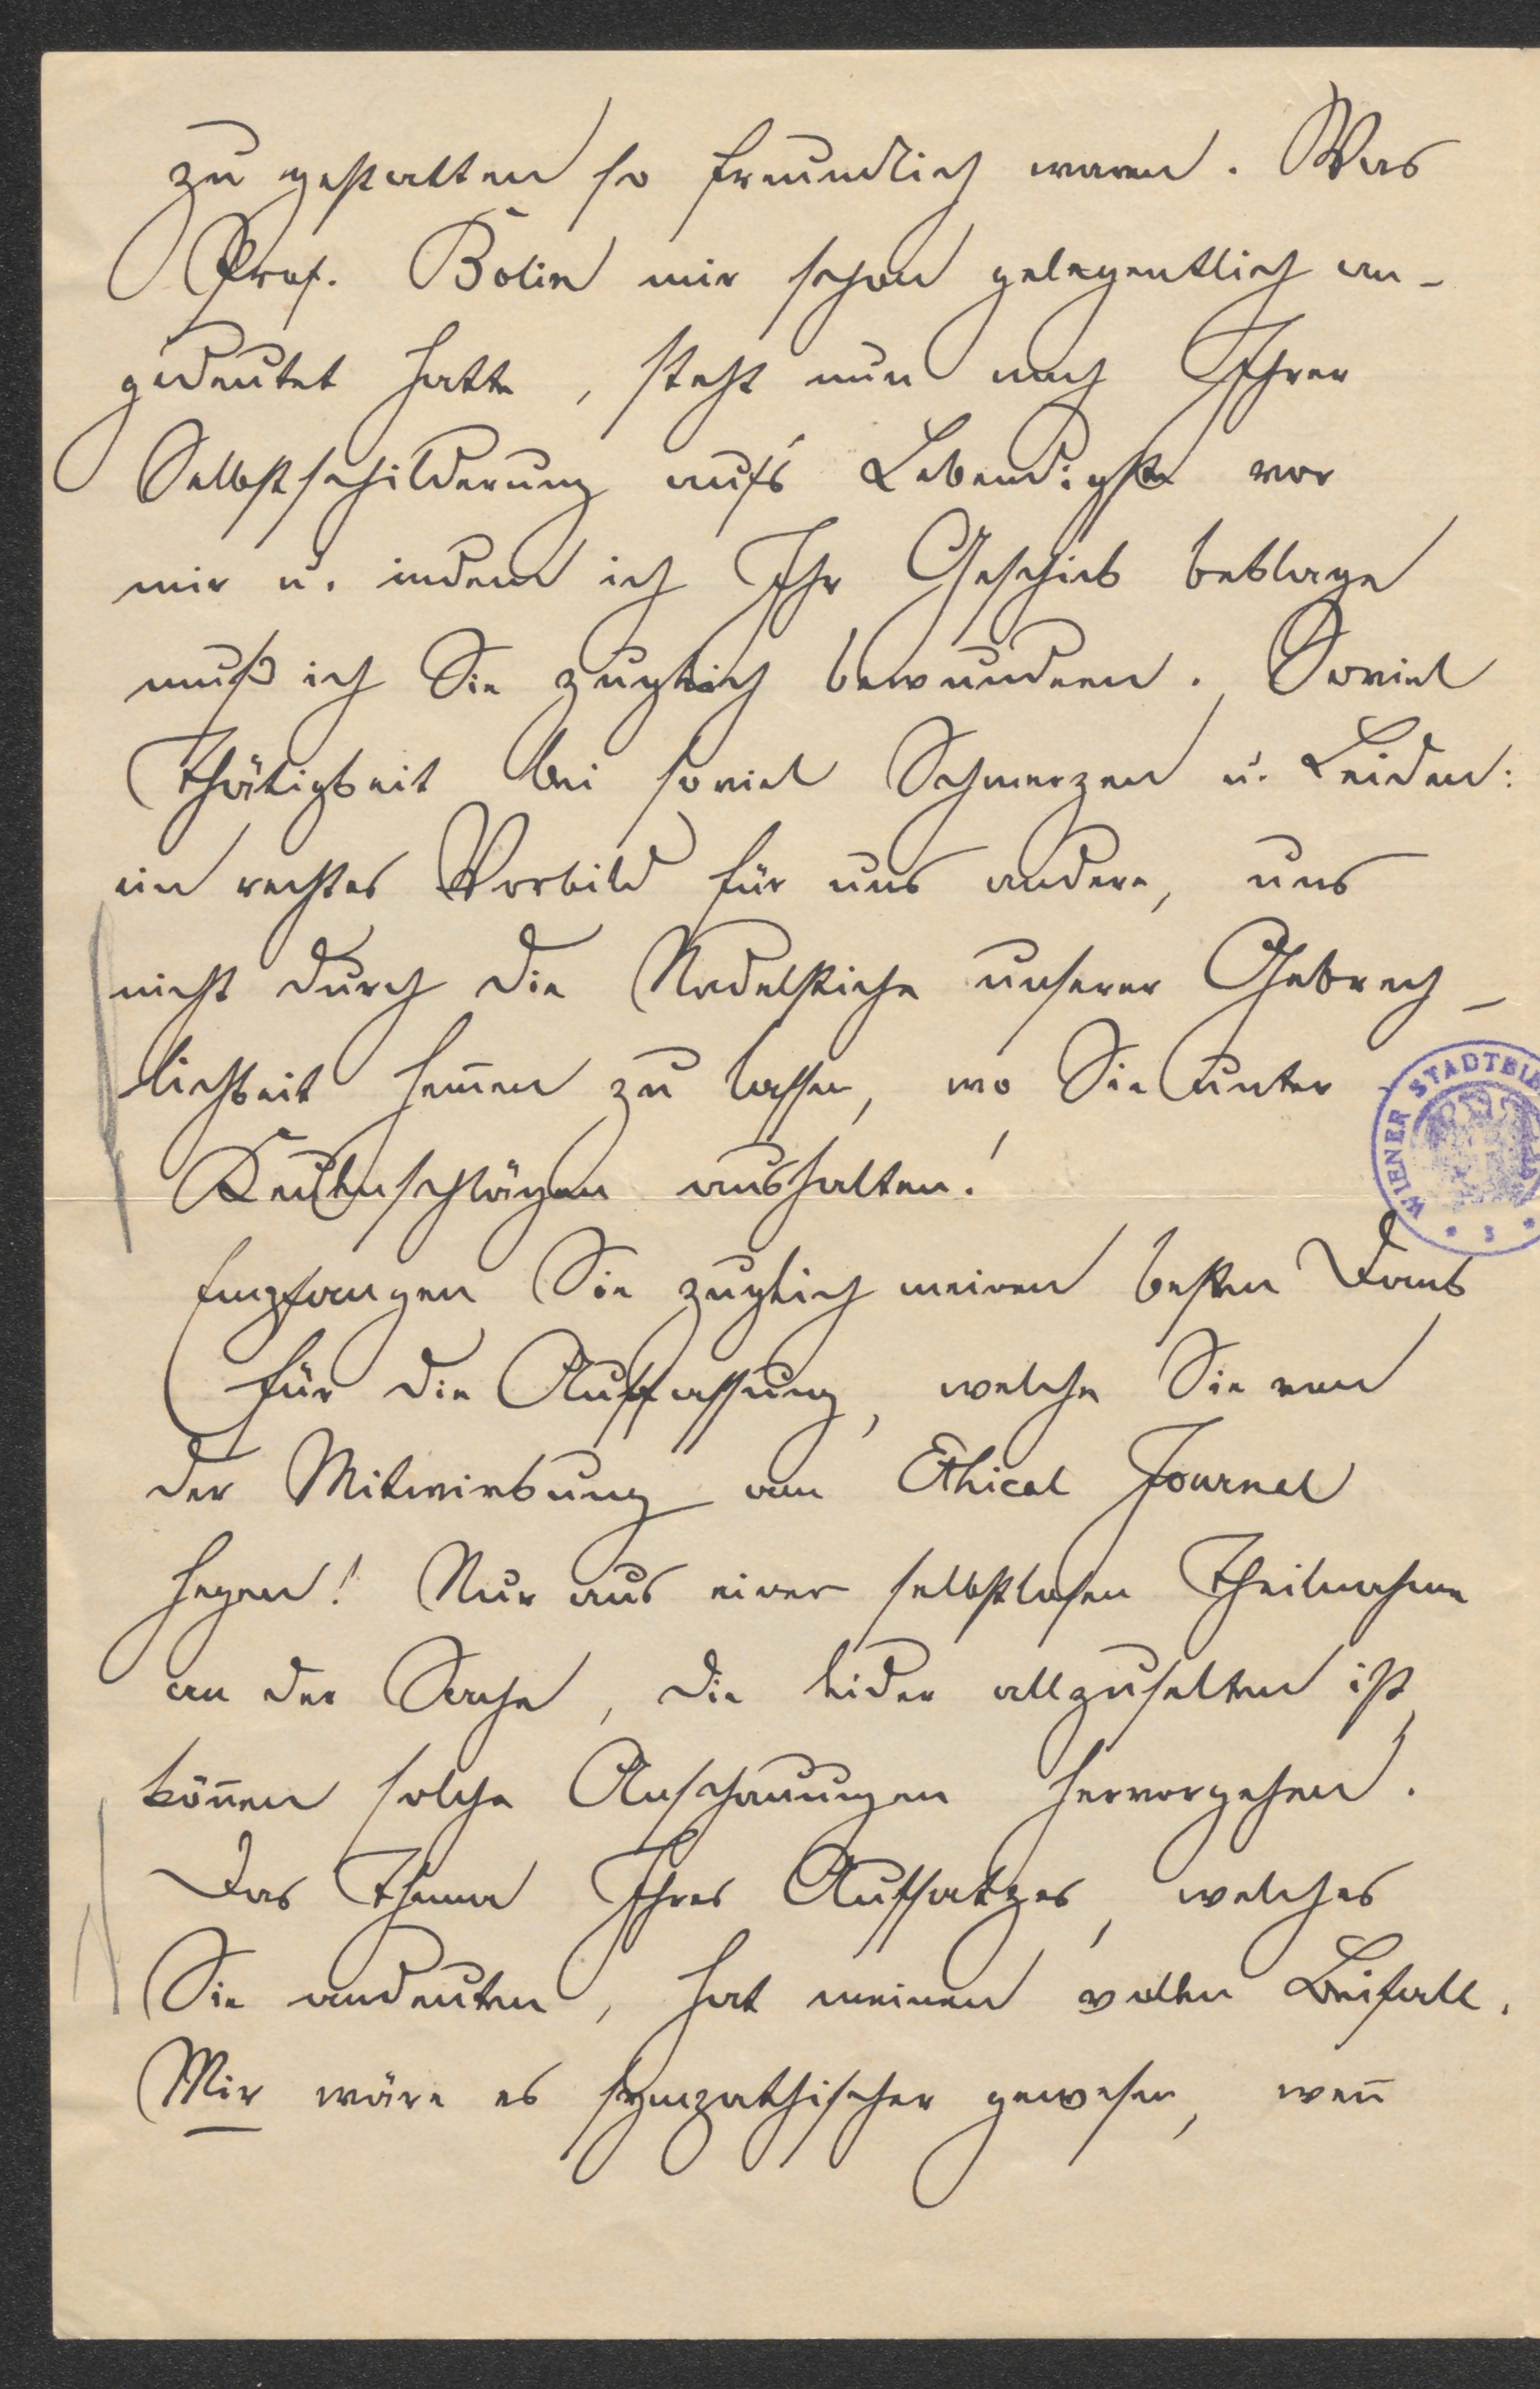 zu gestatten so freundlich waren. Was
Prof. Bolin mir schon gelegentlich an-
gedeutet hatte, steht nun nach Ihrer
Selbstschilderung auf's Lebendigste vor
mir u. indem ich Ihr Geschick beklage
muß ich Sie zugleich bewundern. Soviel
Thätigkeit bei soviel Schmerzen u. Leiden:
ein rechtes Vorbild für uns andere, uns
nicht durch die Nadelstiche unserer Gebrech-
lichkeit hem̄en zu lassen, wo Sie unter
Keulenschlägen aushalten!
Empfangen Sie zugleich meinen besten Dank
für die Auffassung, welche Sie von
der Mitwirkung am Ethical Journal
hegen! Nur aus einer selbstlosen Theilnahme
an der Sache, die leider allzuselten ist,
kön̄en solche Anschauungen hervorgehen.
Das Thema Ihres Aufsatzes, welches
Sie andeuten, hat meinen vollen Beifall.
Mir wäre es sympathischer gewesen, wen̄
WIENER STADTBI
* 3 *